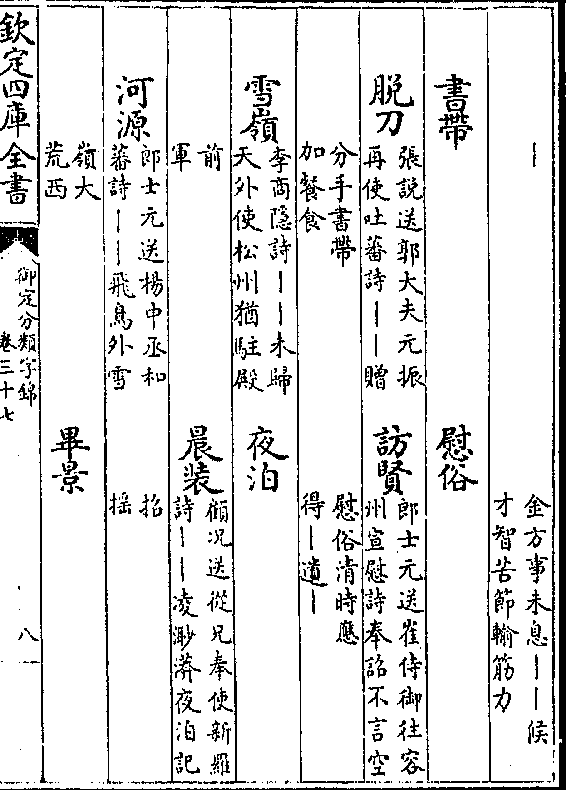 ｜
金方事未息｜｜候
才智苦節輸筋力
書帶
慰俗
脱刀
張說送郭大夫元振
再使吐蕃詩｜｜贈
訪賢
郎士元送崔侍御往容
州宣慰詩奉詔不言空
分手書帶
加餐食
慰俗清時應
得｜遺｜
雪嶺
李商隐詩｜｜未歸
天外使松州猶駐殿
夜泊
前
軍
晨装
顧况送從兄奉使新羅
詩｜｜凌渺漭夜泊記
河源
郎士元送楊中丞和
蕃詩｜｜飛鳥外雪
招
揺
嶺大
荒西
畢景
欽定四庫全書
御定分類字錦
卷三十七
八